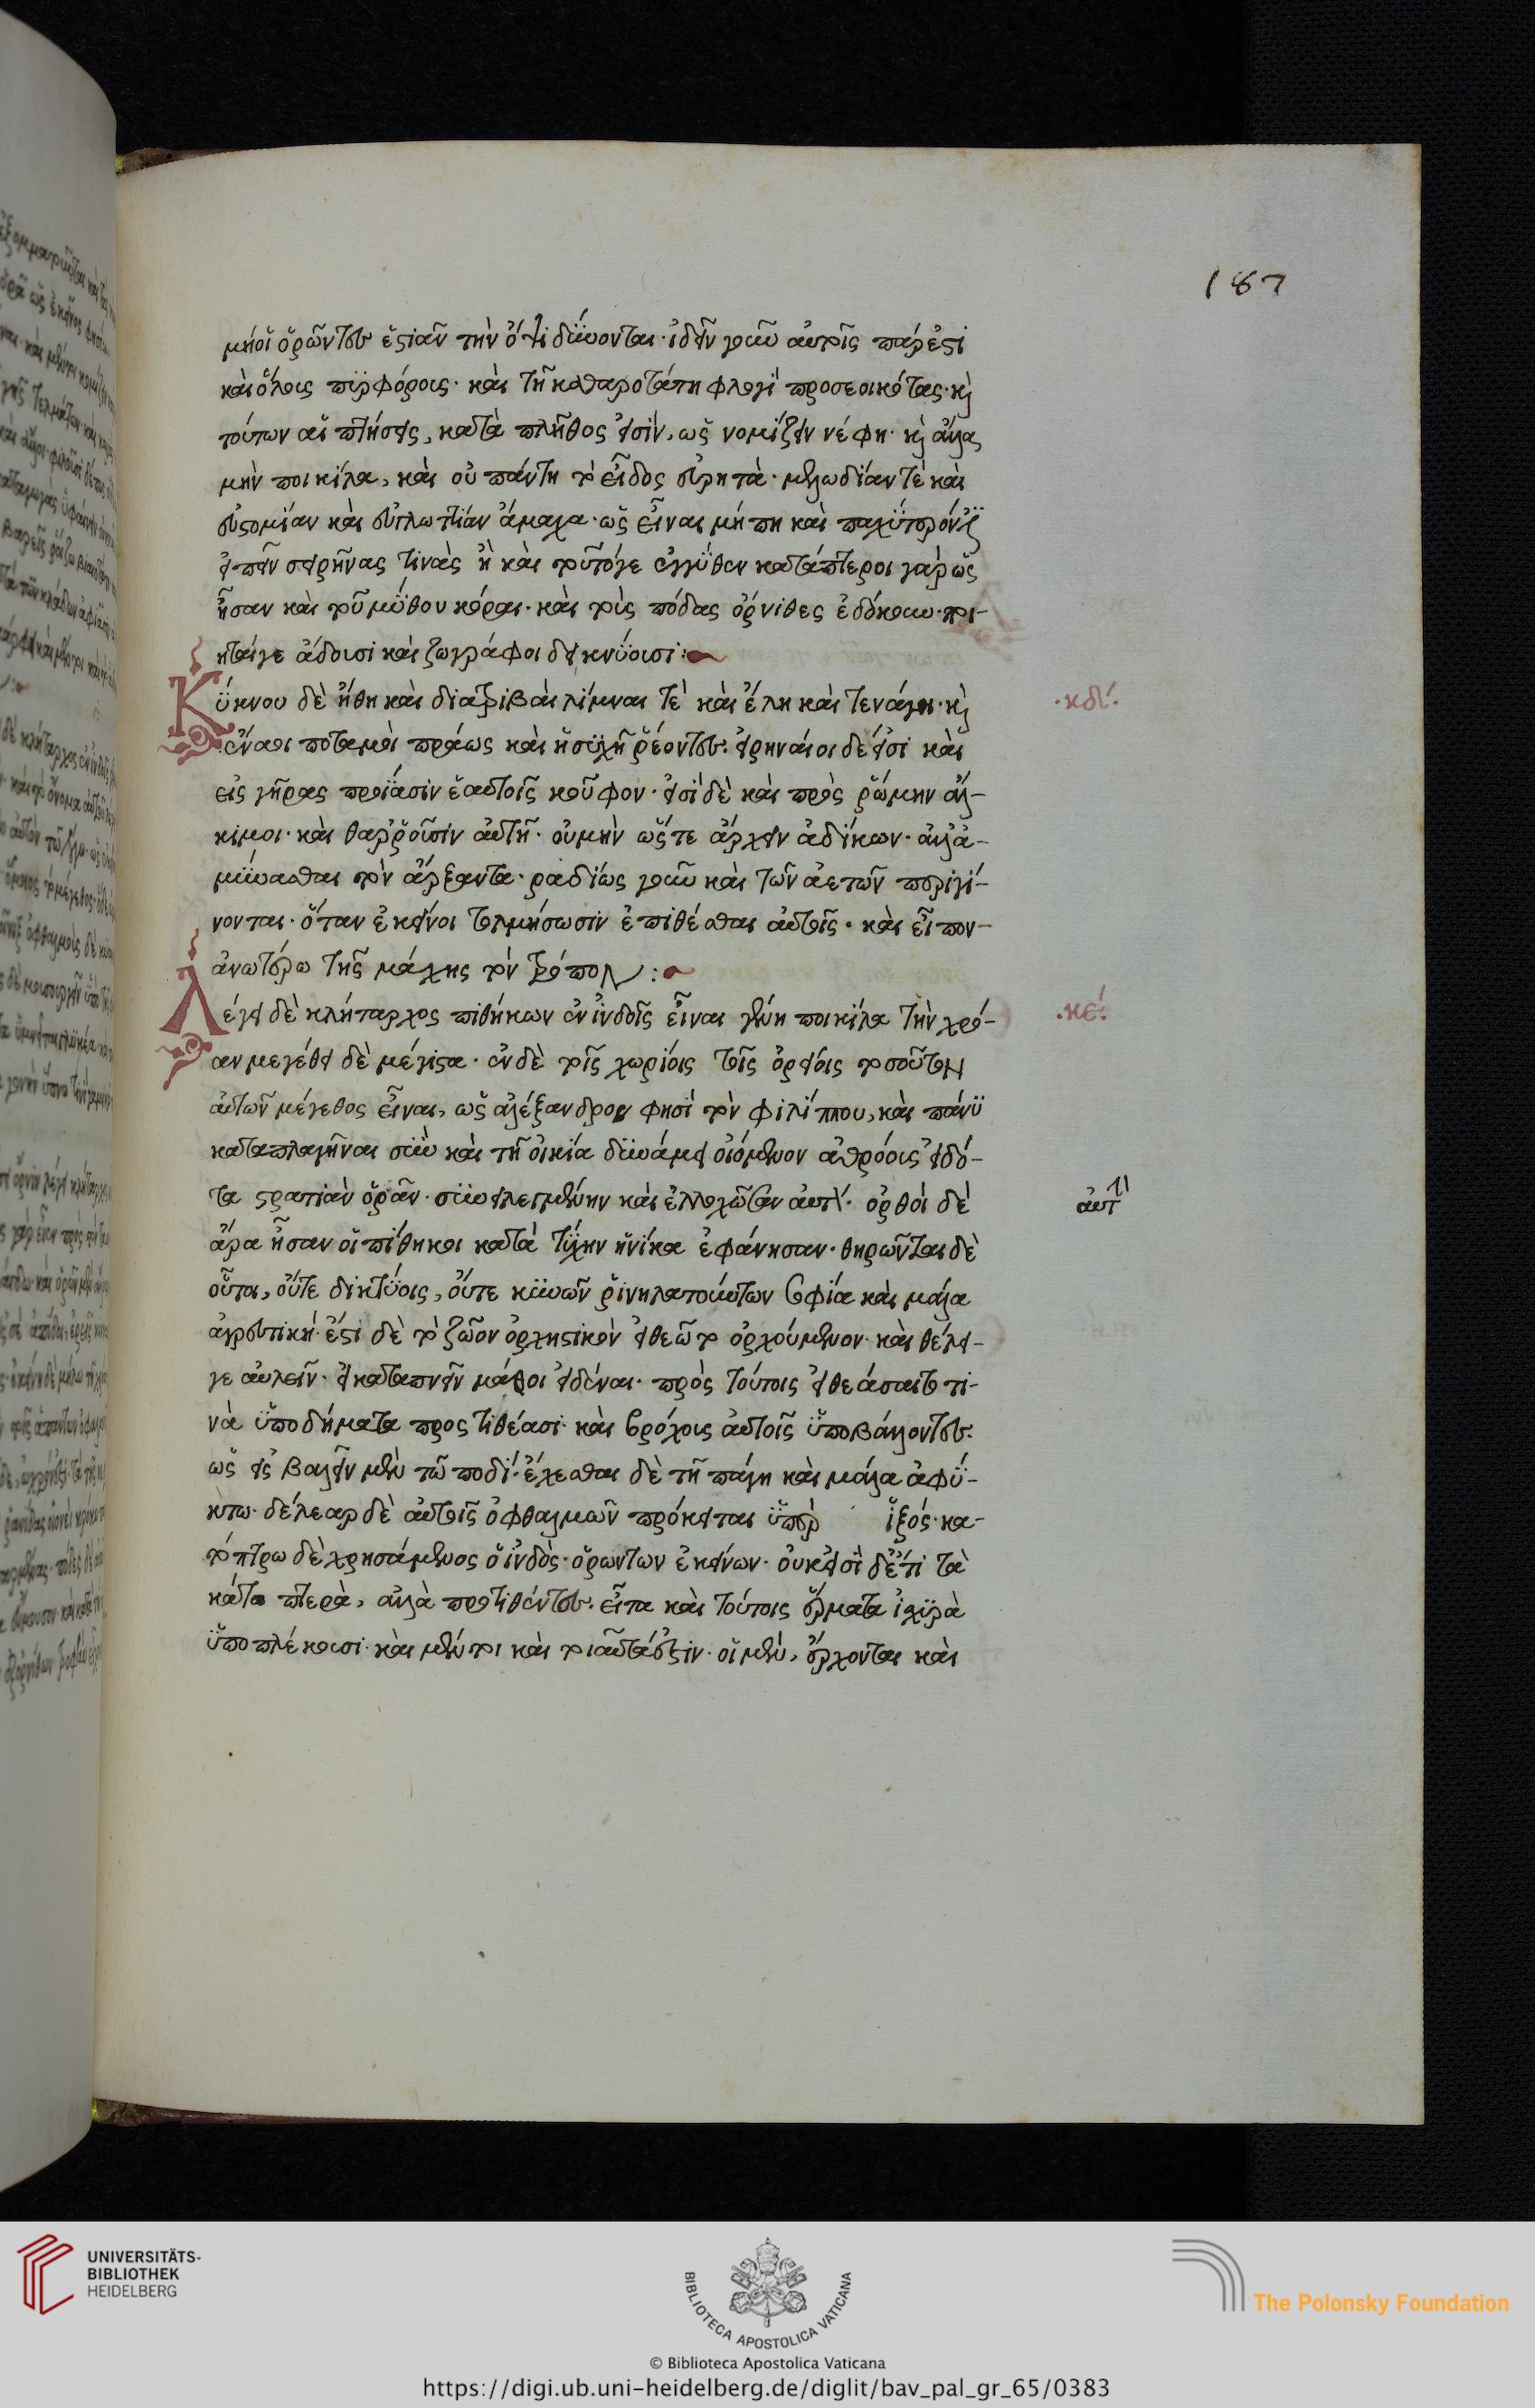 187
μὴ οἱ ὁρῶντες ἑστιᾶν τὴν ὄψι δύνανται· ἰδεῖν γοῦν αὐτοῖς πάρεστι
καὶ ὅλους πυρφόρους· καὶ τῆ καθαροτάτη φλογὶ προσεοικότας· καὶ
τούτων αἱ πτήσεις, κατὰ πλῆθος εἰσὶν, ὡς νομίζειν νέφη· καὶ ἄλλα
μὴν ποικίλα, καὶ οὐ πάντη τὸ εἶδος εὑρητὰ· μελωδίαν τὲ καὶ
εὐστομίαν καὶ εὐγλωττίαν ἄμαχα· ὡς εἶναι μή πη καὶ παχύτερον
εἰπεῖν σειρῆνας τινὰς ἢ καὶ τοῦτό γε ἐγγύθεν κατάπτεροι γὰρ ὡς
ἦσαν καὶ τοῦ μύθου κόραι· καὶ τοὺς πόδας ὄρνιθες ἐδόκουν· ποι-
ηταί γε ἄδουσι καὶ ζωγράφοι δεικνύουσι:
Κύκνου δὲ ἤθη καὶ διατριβαὶ λίμναι τὲ καὶ ἕλη καὶ τενάγοι· καὶ ·κδ΄·
ἔναοι ποταμοὶ πράως καὶ ἡσυχῆ ῥέοντες· εἰρηναίοι δέ εἰσι καὶ
εἰς γῆρας προΐασιν ἑαυτοῖς κοῦφον· εἰσὶ δὲ καὶ πρὸς ῥώμην ἄλ-
κιμοι· καὶ θαρροῦσιν αὐτῆ· οὐ μὴν ὥστε ἄρχειν ἀδίκων· ἀλλ' ἀ-
μύνασθαι τὸν ἄρξαντα· ραδίως γοῦν καὶ τῶν ἀετῶν περιγί-
νονται· ὅταν ἐκεῖνοι τολμήσωσιν ἐπιθέσθαι αὐτοῖς· καὶ εἶπον-
ἀνωτέρω τῆς μάχης τὸν τρόπον:
Λέγει δὲ κλήταρχος πιθήκων ἐν ἰνδοῖς εἶναι γένη ποικίλα τὴν χρό- ·κε΄·
αν μεγέθει δὲ μέγιστα· ἐν δὲ τοῖς χωρίοις τοῖς ὀρείοις τοσοῦτον
αὐτῶν μέγεθος εἶναι, ὡς ἀλέξανδρον φησὶ τὸν φιλίππου, καὶ πάνυ
καταπλαγῆναι σὺν καὶ τῆ οἰκία δυνάμει οἰόμενον ἀθρόους εἰδό-
τα στρατιὰν ὁρᾶν· συνειλεγμένην καὶ ἐλλοχῶσαν αὐτὸν· ὀρθοὶ δὲ αὐτ
ἄρα ἦσαν οἱ πίθηκοι κατὰ τύχην ἡνίκα ἐφάνησαν· θηρῶνται δὲ
οὗτοι, οὔτε δικτύοις, οὔτε κυνῶν ῥινηλατούντων σοφία καὶ μάλα
ἀγρευτική· ἔστι δὲ τὸ ζῶον ὀρχηστικὸν εἰ θεῶτο ὀρχούμενον· καὶ θέλει-
γε αὐλεῖν· εἰ καταπνεῖν μάθοι εἰδέναι· πρὸς τούτοις εἰ θεάσαιτο τι-
νὰ ὑποδήματα προστιθέασι· καὶ βρόχους αὐτοῖς ὑποβάλλοντες·
ὡς εἰς βαλεῖν μὲν τῶ ποδί· ἔχεσθαι δὲ τῆ πάγη καὶ μάλα ἀφύ-
κτω· δέλεαρ δὲ αὐτοῖς ὀφθαλμῶν πρόκειται ὑπὲρ ἰξός· κα-
τόπτρω δὲ χρησάμενος ὁ ἰνδὸς· ὁρώντων ἐκείνων· οὐκ εἰσὶ δ' ἔτι τὰ
κάτω πτερὰ, ἀλλὰ προτιθέντες· εἶτα καὶ τούτοις ἕρματα ἰσχυρὰ
ὑποπλέκουσι· καὶ μέντοι καὶ τοιαῦτα ἐστιν· οἱ μὲν, ἔρχονται καὶ
UNIVERSITÄTS-
BIBLIOTHEK
HEIDELBERG
BIBLIOTECA APOSTOLICA VATICANA
The Polonsky Foundation
© Biblioteca Apostolica Vaticana
https://digi.ub.uni-heidelberg.de/diglit/bav_pal_gr_65/0383